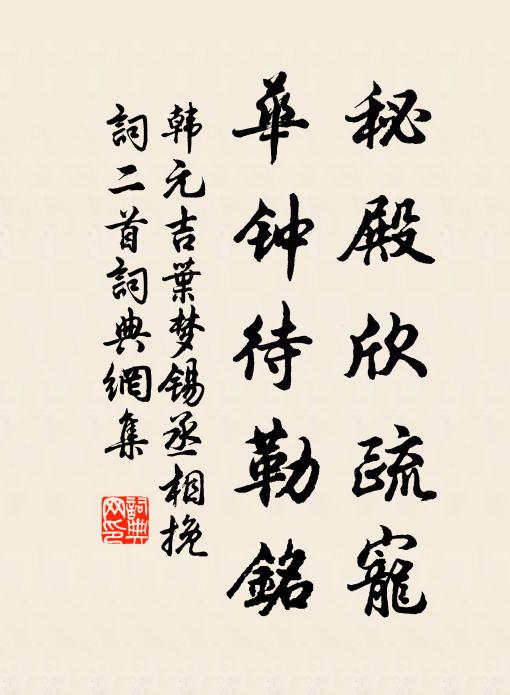 秘殿欣疏寵
華钟待勒銘
韩元吉葉梦锡丞相挽
詞二首詞典網集
詞典
网印